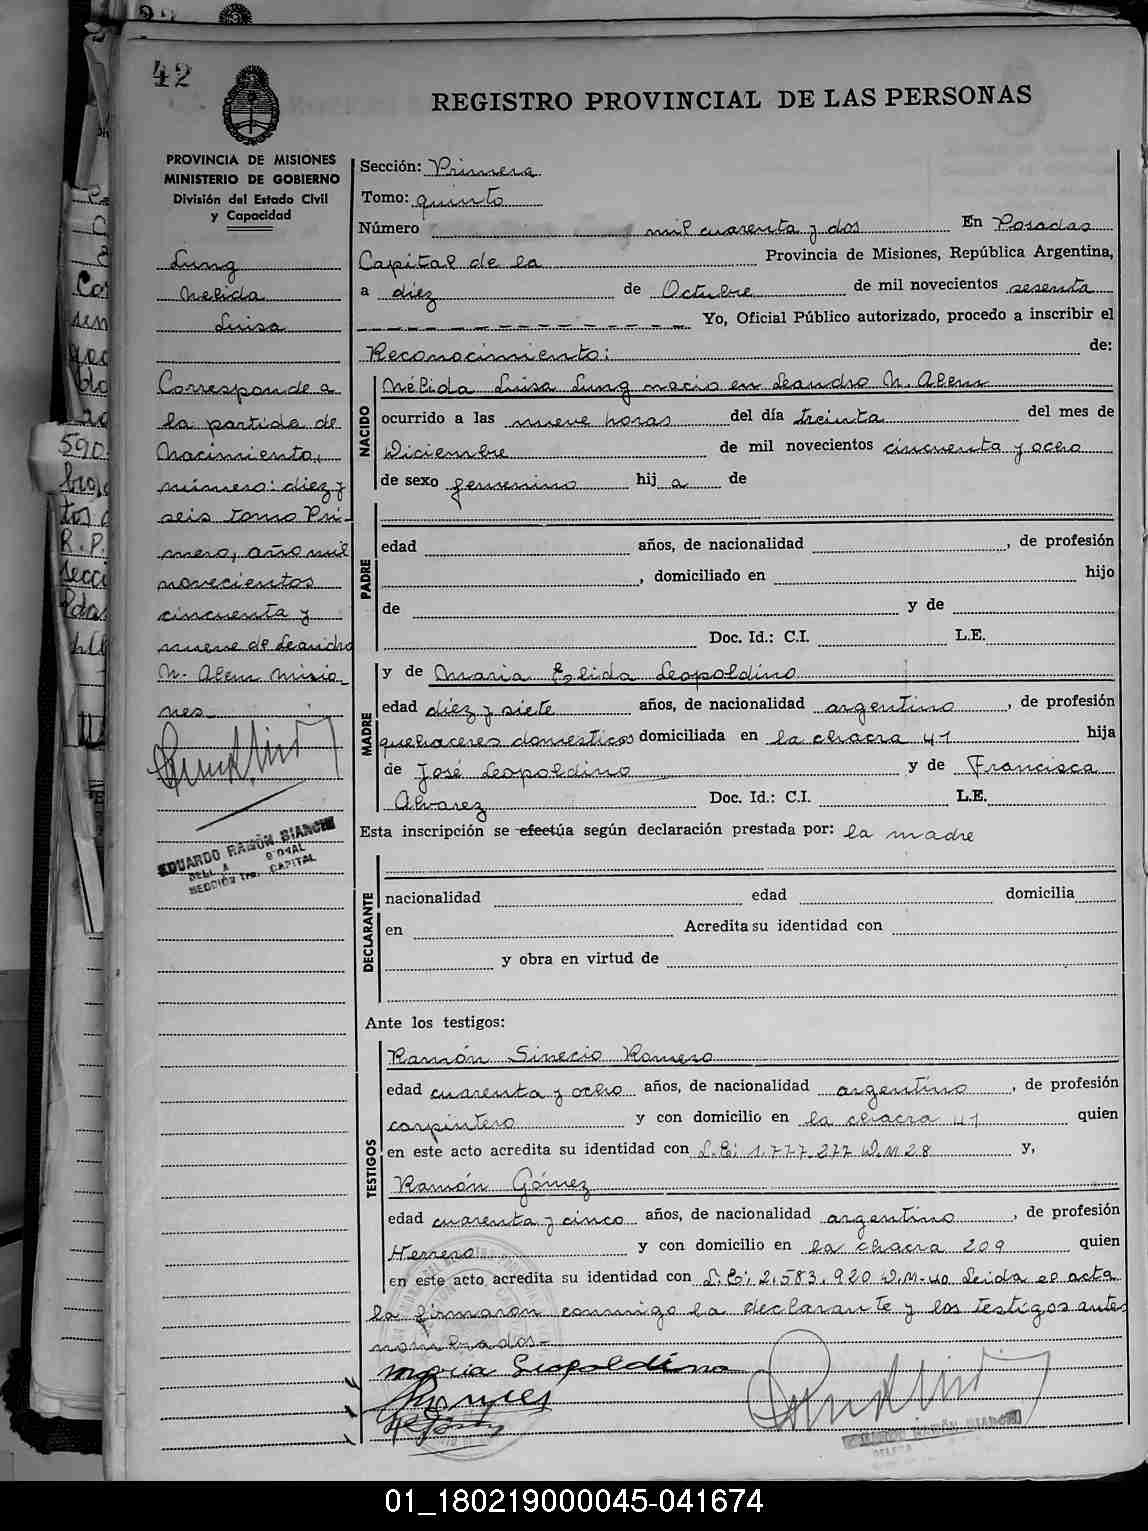 42
REGISTRO PROVINCIAL DE LAS PERSONAS
PROVINCIA DE MISIONES
MINISTERIO DE GOBIERNO
División del Estado Civil
y Capacidad
Lung
Nelida
Luisa
Corresponde a
la partida de
Nacimiento,
número: diez y
seis tomo Pri-
mero, año mil
novecientos
cincuenta y
nueve de Leandro
N. Alem Misio-
nes
EDUARDO RAMÓN BIANCHI
SECCIÓN 1ra. CAPITAL
Sección: Primera
Tomo: quinto
Número mil cuarenta y dos En Posadas
Capital de la Provincia de Misiones, República Argentina,
a diez de Octubre de mil novecientos sesenta
Yo, Oficial Público autorizado, procedo a inscribir el
Reconocimiento: de:
NACIDO
Nélida Luisa Lung nacio en Leandro N. Alem
ocurrido a las nueve horas del día treinta del mes de
Diciembre de mil novecientos cincuenta y ocho
de sexo femenino hij a de
PADRE
edad años, de nacionalidad , de profesión
, domiciliado en hijo
de y de
Doc. Id.: C.I. L.E.
MADRE
y de Maria Eslida Leopoldino
edad diez y siete años, de nacionalidad argentino , de profesión
quehaceres domesticos domiciliada en la chacra 41 hija
de José Leopoldino y de Francisca
Alvarez Doc. Id.: C.I. L.E.
Esta inscripción se efectúa según declaración prestada por: la madre
DECLARANTE
nacionalidad edad domicilia
en Acredita su identidad con
y obra en virtud de
Ante los testigos:
TESTIGOS
Ramón Sinecio Romero
edad cuarenta y ocho años, de nacionalidad argentino , de profesión
carpintero y con domicilio en la chacra 41 quien
en este acto acredita su identidad con L.E: 1.777.277 D.M 28 y,
Ramón Gómez
edad cuarenta y cinco años, de nacionalidad argentino , de profesión
Herrero y con domicilio en la chacra 209 quien
en este acto acredita su identidad con L.E: 2.583.920 D.M-40 Leida el acta
la firmaron conmigo la declarante y los testigos antes
nombrados-
Maria Leopoldino
EDUARDO RAMÓN BIANCHI
590
R.P.
01_180219000045-041674